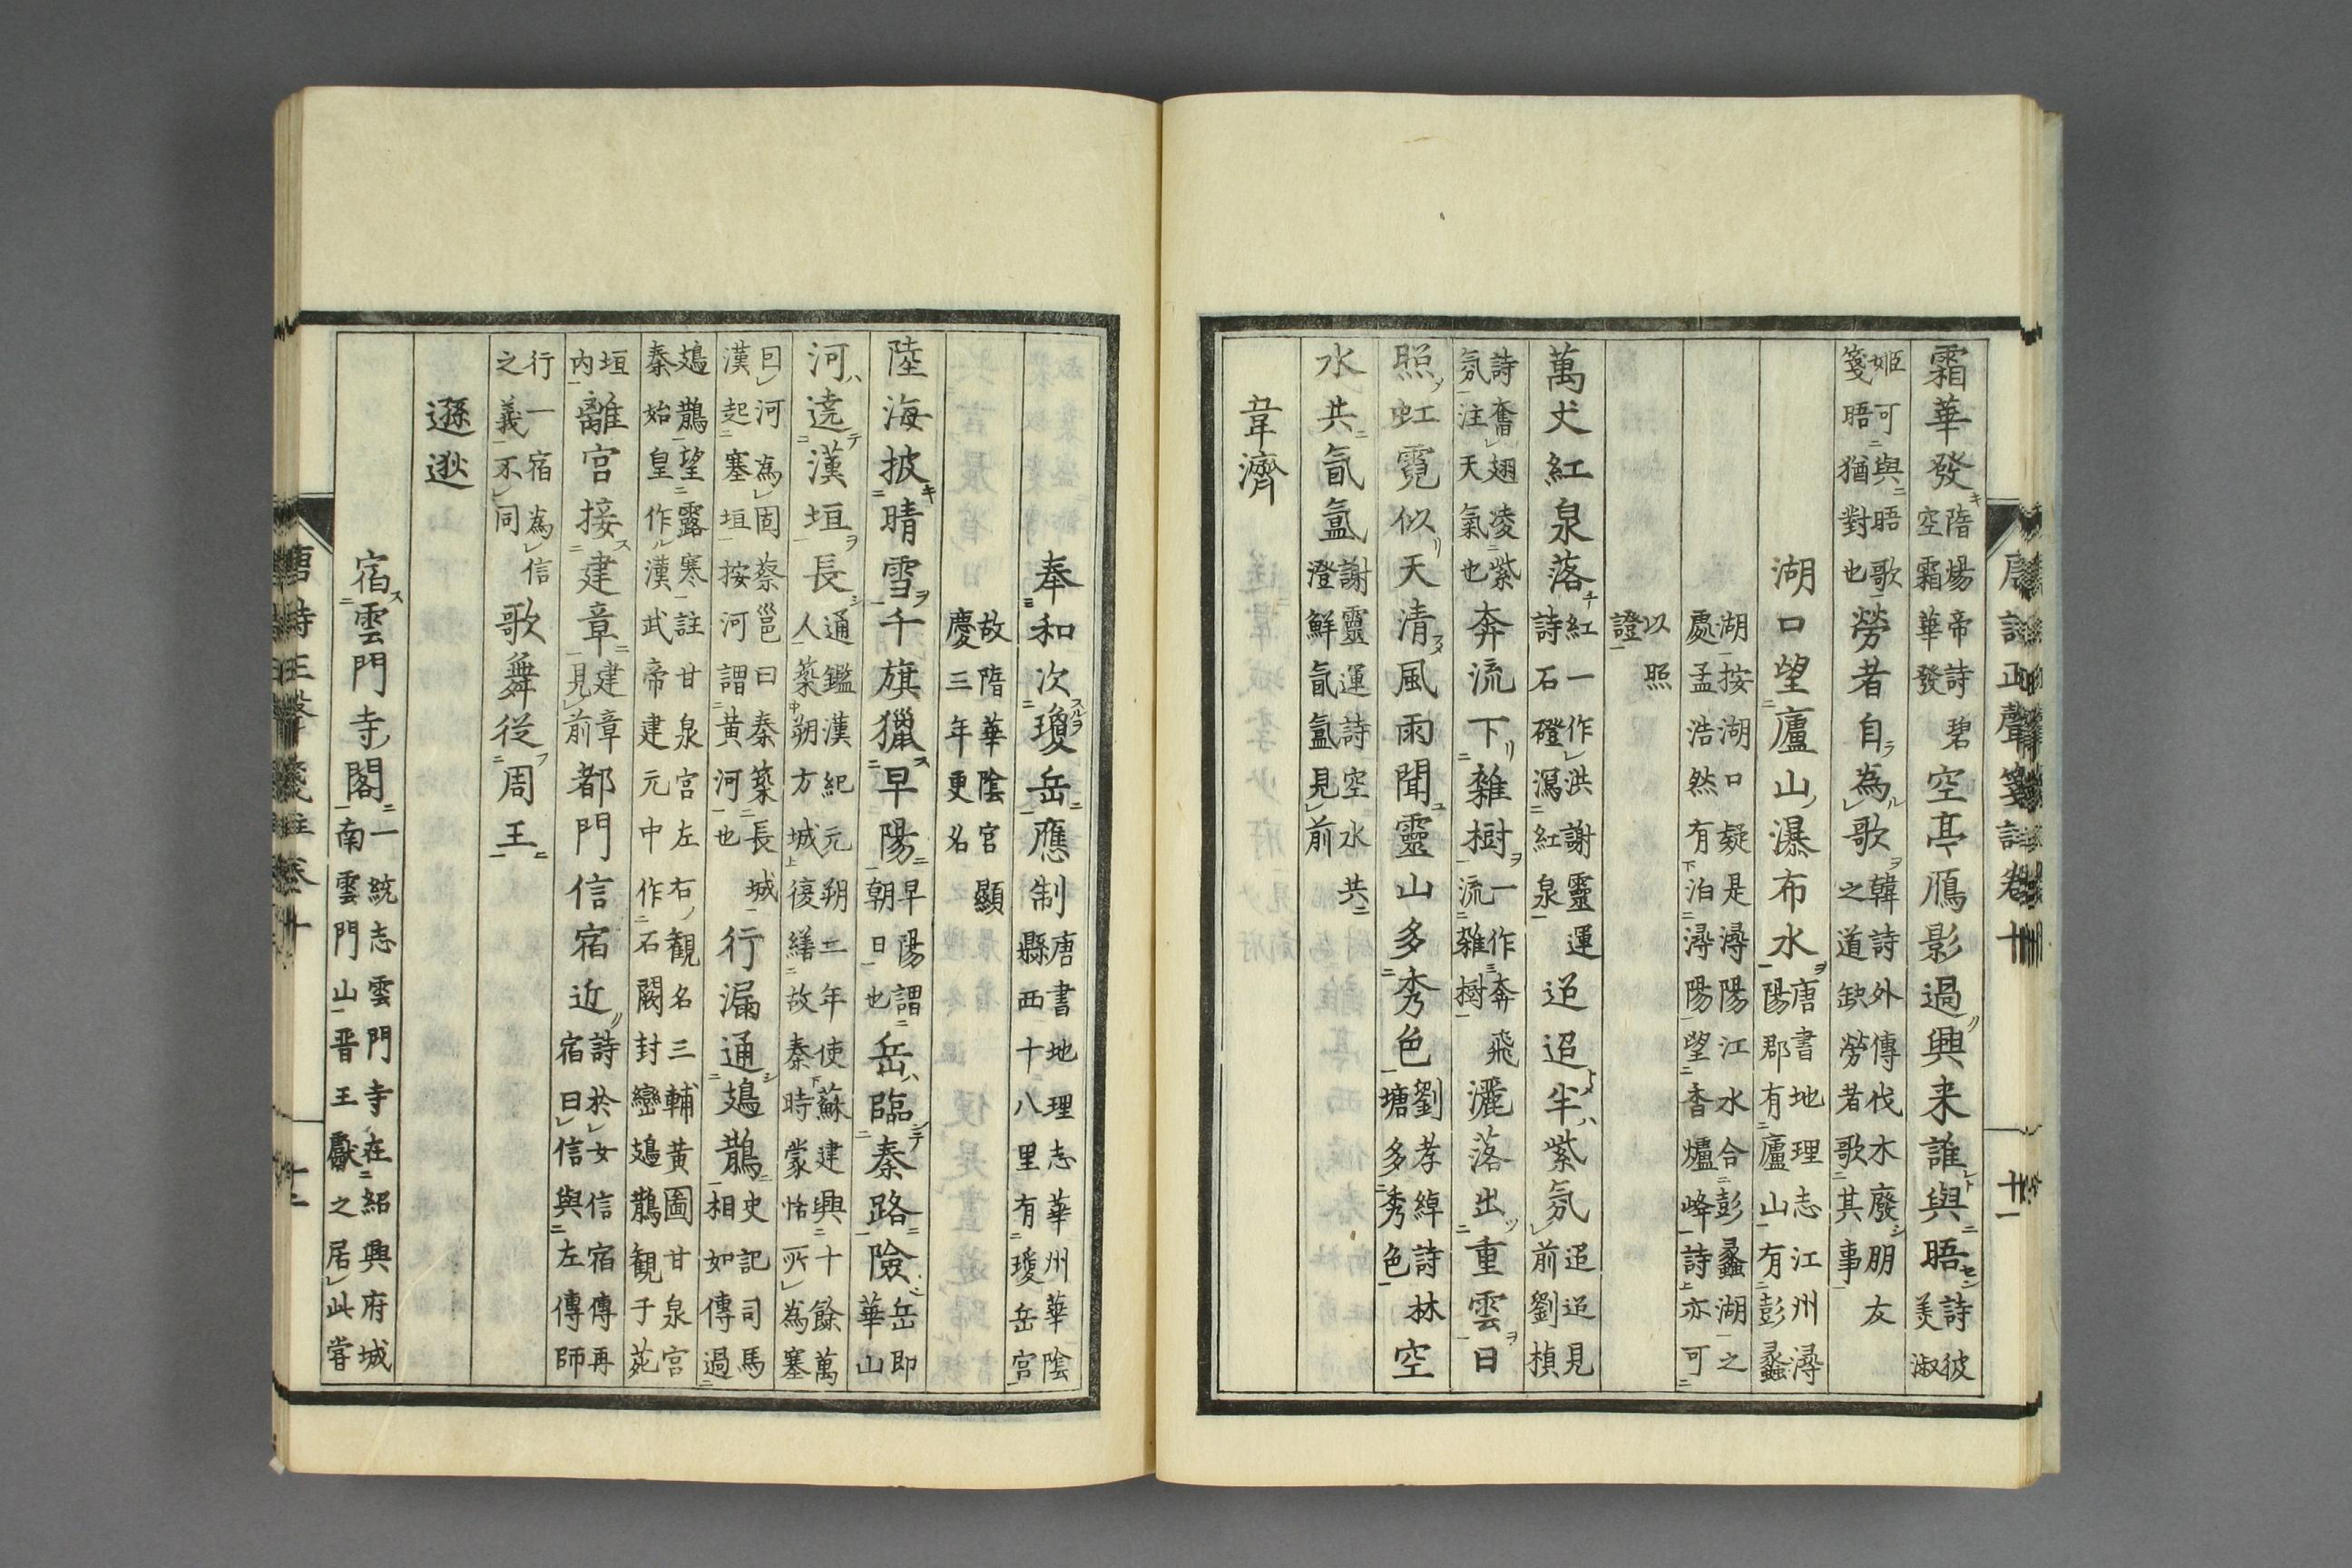 唐詩正聲箋註卷十
霜華發隋煬帝詩碧空霜華發空亭鴈影過興来誰與晤詩彼美淑
姬可與晤歌箋晤猶對也勞者自為歌韓詩外傳伐木廢朋友之道缺勞者歌其事
湖口望廬山瀑布水唐書地理志江州潯陽郡有廬山有彭蠡
湖按湖口疑是潯陽江水合彭蠡湖之處孟浩然有泊潯陽望香爐峰詩亦可
以照證
萬丈紅泉落紅一作洪謝靈運詩石磴瀉紅泉迢迢半紫氛迢迢見前劉楨
詩奮翅凌紫氛注天氣也奔流下雜樹一作奔飛流雜樹灑落出重雲日
照虹霓似天清風雨聞靈山多秀色劉孝綽詩林塘多秀色空
水共氤氳謝靈運詩空水共澄鮮氤氳見前
韋濟
奉和次瓊岳應制唐書地理志華州華陰縣西十八里有瓊岳宮
故隋華陰宮顯慶三年更名
陸海披晴雪千旗獵早陽早陽謂朝日也岳臨秦路險岳即華山
河遶漢垣長通鑑漢紀元朔二年使蘇建興十餘萬人築朔方城復繕故秦時蒙恬所為塞
囙河為固蔡邕曰秦築長城漢起塞垣按河謂黃河也行漏通鳷鵲史記司馬相如傳過
鳷鵲望露寒註甘泉宮左右観名三輔黃圖甘泉宮秦始皇作漢武帝建元中作石闕封巒鳷鵲観于苑
垣內離宮接建章建章見前都門信宿近詩於女信宿傳再宿曰信與左傳師
行一宿為信之義不同歌舞從周王
遜逖
宿雲門寺閣一統志雲門寺在紹興府城南雲門山晋王獻之居此嘗
唐詩正聲箋註卷十
十二